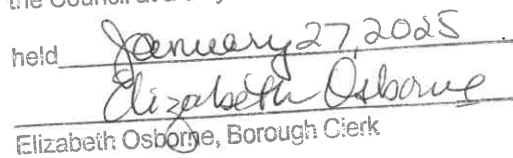 the Council at a
held January 27, 2025.
Elizabeth Osborne
Elizabeth Osborne, Borough Clerk